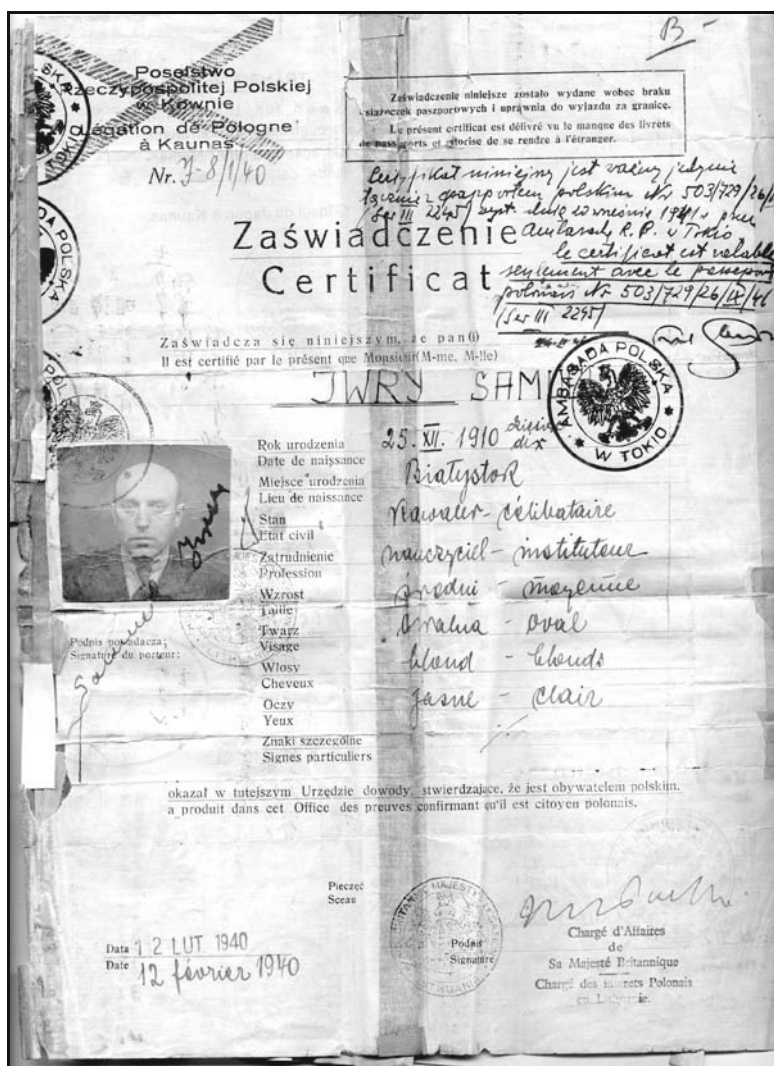 B -
Poselstwo
Rzeczypospolitej Polskiej
w Kownie
Légation de Pologne
à Kaunas
Nr. 7-8/1/40
Zaświadczenie niniejsze zostało wydane wobec braku
książeczek paszportowych i uprawnia do wyjazdu za granicę.
Le présent certificat est délivré vu le manque des livrets
de passeports et autorise de se rendre à l'étranger.
Certyfikat niniejszy jest ważny jedynie
łącznie z paszportem polskim Nr 503/729/26/
/Ser III 2245/ wyst. dnia września 1941 r. przez
ambasadę R.P. w Tokio
le certificat est valable
seulement avec le passeport
polonais Nr 503/729/26/IX/41
/Ser III 2245/
Zaświadczenie
Certificat
Zaświadcza się niniejszym, że pan(i)
Il est certifié par le présent que Monsieur(M-me, M-lle)
IWRY SAM
AMBASADA POLSKA
W TOKIO
Rok urodzenia 25. XII. 1910 dziesięć
Date de naissance dix
Miejsce urodzenia Białystok
Lieu de naissance
Stan kawaler - célibataire
Etat civil
Zatrudnienie nauczyciel - instituteur
Profession
Wzrost średni - moyenne
Taille
Twarz owalna - oval
Visage
Włosy blond - blonds
Cheveux
Oczy jasne - clair
Yeux
Znaki szczególne
Signes particuliers
Podpis posiadacza;
Signature du porteur:
okazał w tutejszym Urzędzie dowody, stwierdzające, że jest obywatelem polskim.
a produit dans cet Office des preuves confirmant qu'il est citoyen polonais.
Pieczęć
Sceau
Data 12 LUT. 1940
Date 12 février 1940
Podpis
Signature
Chargé d'Affaires
de
Sa Majesté Britannique
Chargé des interets Polonais
en Lithuanie.